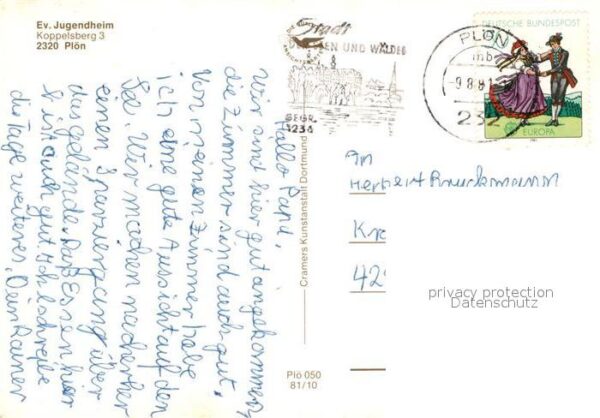 Ev. Jugendheim
Koppelsberg 3
2320 Plön
Hallo Papi,
wir sind hier gut angekommen,
die Zimmer sind auch gut.
Von meinen Zimmer habe
ich eine gute Aussicht auf den
See. Wir machen nachher
einen Spaziergang über
das gelände. Das Essen hier
ist auch gut. Ich schreibe
die Tage weiteres, Dein Rainer
Plö 050
81/10
Cramers Kunstanstalt Dortmund
Stadt
SEEN UND WÄLDER
SEGR.
1236
PLÖN
mb
-9.8.81
232
DEUTSCHE BUNDESPOST
EUROPA
An
Herbert Bruckmann
K
42
privacy protection
Datenschutz